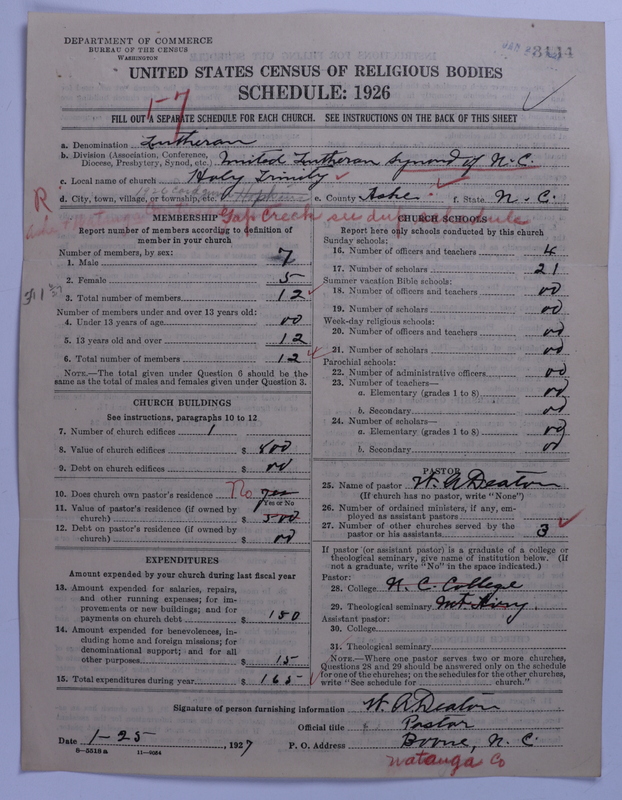 DEPARTMENT OF COMMERCE
BUREAU OF THE CENSUS
WASHINGTON
3414
UNITED STATES CENSUS OF RELIGIOUS BODIES
SCHEDULE: 1926
1-7
FILL OUT A SEPARATE SCHEDULE FOR EACH CHURCH. SEE INSTRUCTIONS ON THE BACK OF THIS SHEET
a. Denomination Lutheran
b. Division (Association, Conference, Diocese, Presbytery, Synod, etc.) United Lutheran Synond of N. C.
c. Local name of church Holy Trinity
d. City, town, village, or township, etc. Hopkins e. County Ashe f. State N. C.
R
Gap Creek see dup schedule
MEMBERSHIP
Report number of members according to definition of member in your church
Number of members, by sex:
1. Male 7
2. Female 5
3. Total number of members 12
Number of members under and over 13 years old:
4. Under 13 years of age 00
5. 13 years old and over 12
6. Total number of members 12
NOTE.—The total given under Question 6 should be the same as the total of males and females given under Question 3.
CHURCH BUILDINGS
See instructions, paragraphs 10 to 12
7. Number of church edifices 1
8. Value of church edifices $ 800
9. Debt on church edifices $ 00
10. Does church own pastor's residence No yes
Yes or No
11. Value of pastor's residence (if owned by church) $ 500
12. Debt on pastor's residence (if owned by church) $ 00
EXPENDITURES
Amount expended by your church during last fiscal year
13. Amount expended for salaries, repairs, and other running expenses; for improvements or new buildings; and for payments on church debt $ 150
14. Amount expended for benevolences, including home and foreign missions; for denominational support; and for all other purposes $ 15
15. Total expenditures during year $ 165
CHURCH SCHOOLS
Report here only schools conducted by this church
Sunday schools:
16. Number of officers and teachers 4
17. Number of scholars 21
Summer vacation Bible schools:
18. Number of officers and teachers 00
19. Number of scholars 00
Week-day religious schools:
20. Number of officers and teachers 00
21. Number of scholars 00
Parochial schools:
22. Number of administrative officers 00
23. Number of teachers—
a. Elementary (grades 1 to 8) 00
b. Secondary 00
24. Number of scholars—
a. Elementary (grades 1 to 8) 00
b. Secondary 00
PASTOR
25. Name of pastor W. A Deaton
(If church has no pastor, write "None")
26. Number of ordained ministers, if any, employed as assistant pastors
27. Number of other churches served by the pastor or his assistants 3
If pastor (or assistant pastor) is a graduate of a college or theological seminary, give name of institution below. (If not a graduate, write "No" in the space indicated.)
Pastor:
28. College N. C. College
29. Theological seminary Mt Airy.
Assistant pastor:
30. College
31. Theological seminary
NOTE.—Where one pastor serves two or more churches, Questions 28 and 29 should be answered only on the schedule for one of the churches; on the schedules for the other churches, write "See schedule for church."
Signature of person furnishing information W. A Deaton
Official title Pastor
Date 1-25, 1927 P. O. Address Boone, N. C.
8-5518 a 11-9034
Watauga Co